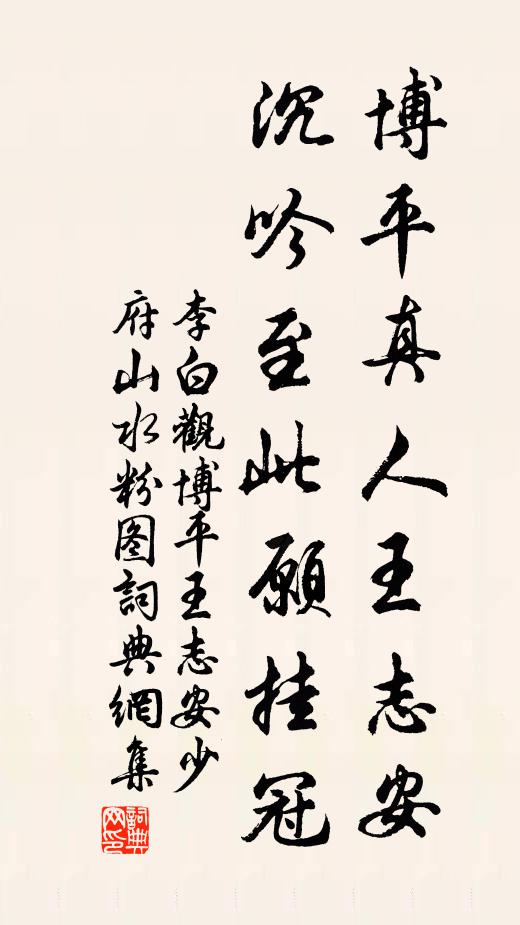 博平真人王志安
沉吟至此願挂冠
李白觀博平王志安少
府山水粉图詞典網集
詞典
网印